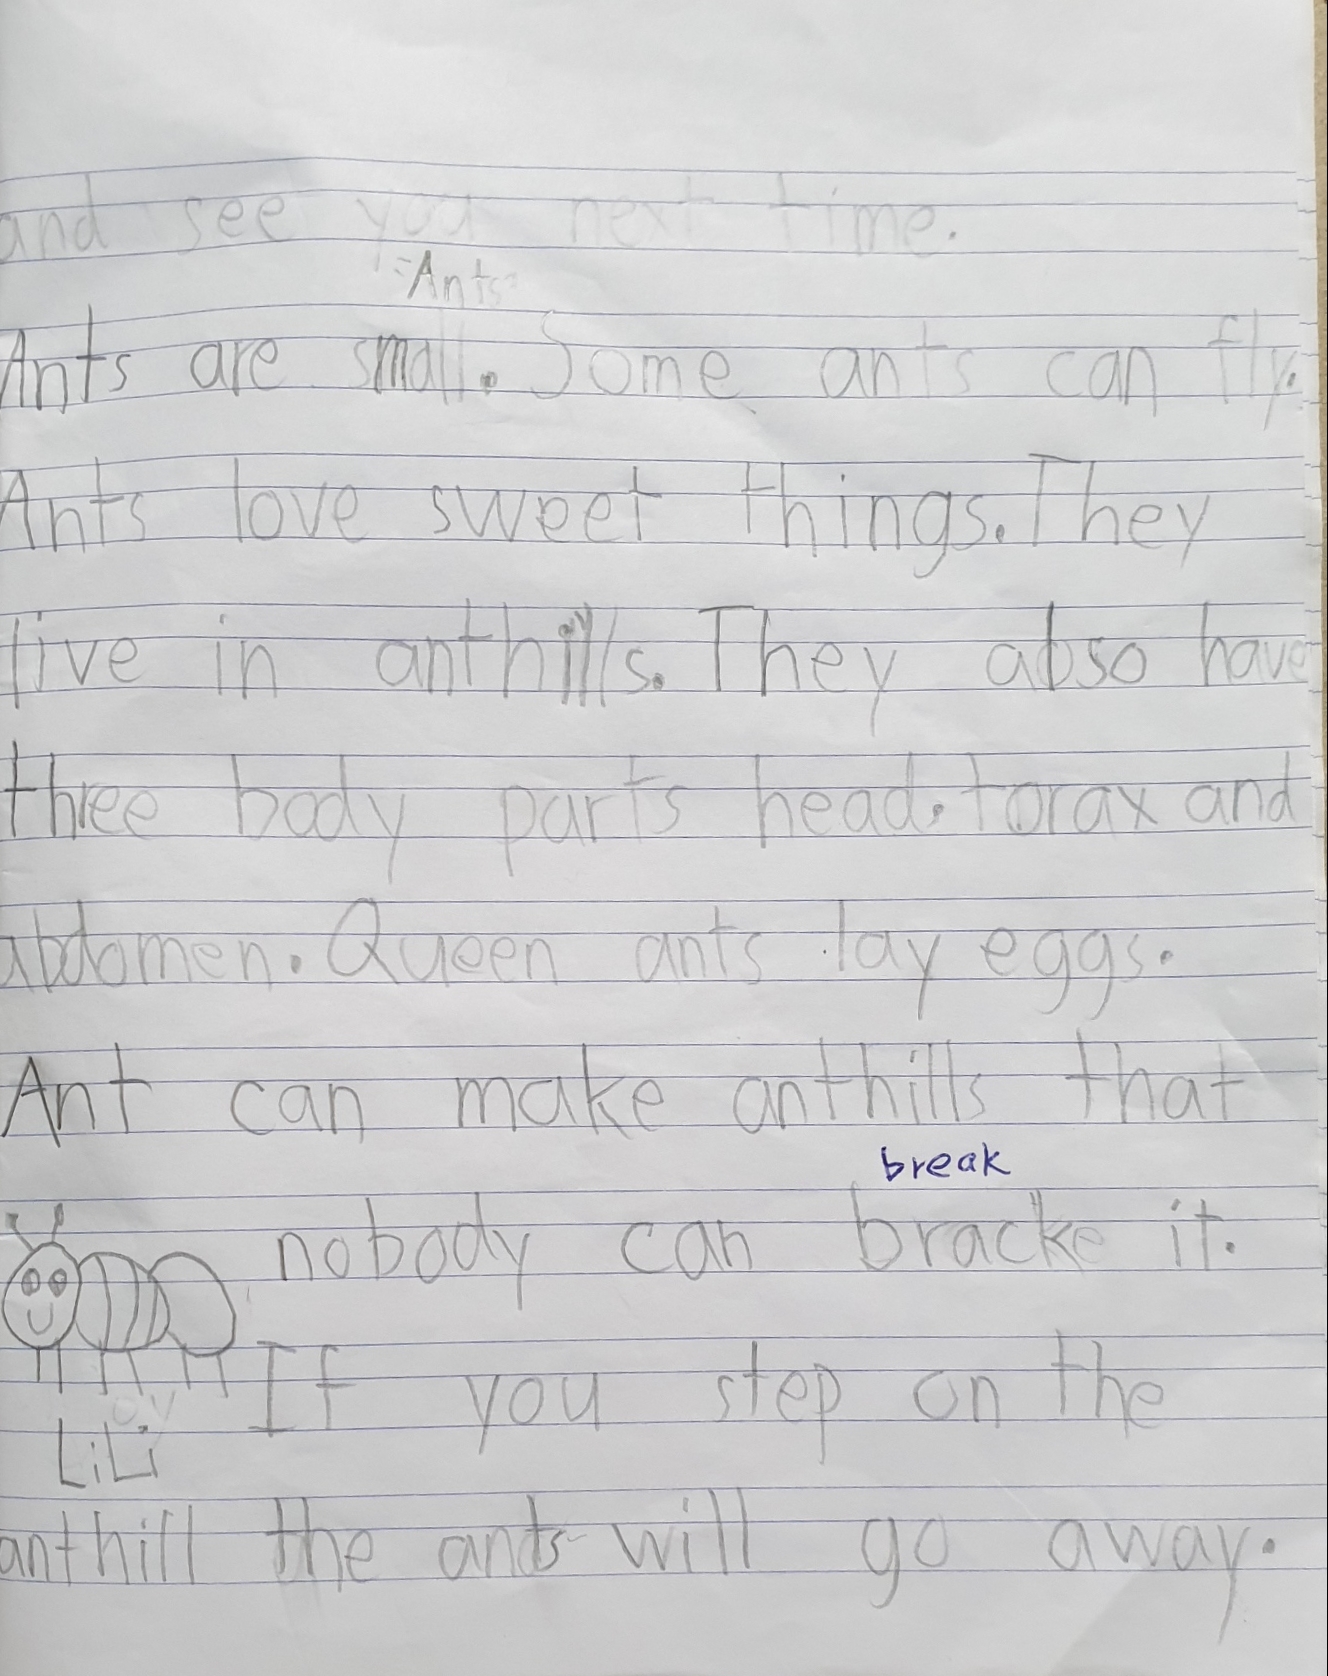 and see you next time.
Ants
Ants are small. Some ants can fly.
Ants love sweet things. They
live in anthills. They abso have
three body parts head, torax and
abdomen. Queen ants lay eggs.
Ant can make anthills that
break
nobody can bracke it.
If you step on the
LiLi
anthill the ants will go away.